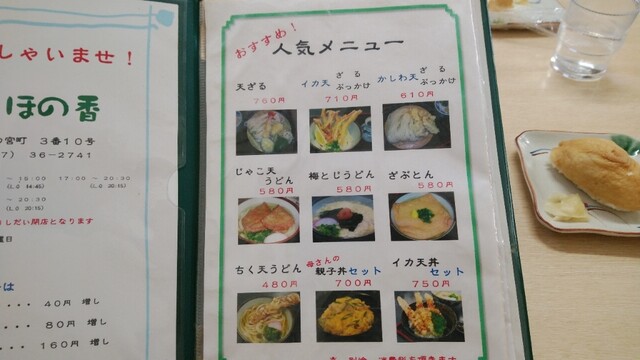 しゃいませ！
ほの香
宮町 3番10号
7） 36-2741
～ 15:00 17:00 ～ 20:30
(L.O 14:45) (L.O 20:15)
～ 20:30
(L.O 20:15)
しだい閉店となります
曜日
は
・・・ 40円 増し
・・・ 80円 増し
・・・ 160円 増し
おすすめ！
人気メニュー
天ざる
760円
イカ天 ざる ぶっかけ
710円
かしわ天 ざる ぶっかけ
610円
じゃこ天
うどん
580円
梅とじうどん
580円
ざぶとん
580円
ちく天うどん
480円
母さんの
親子丼セット
700円
イカ天丼
セット
750円